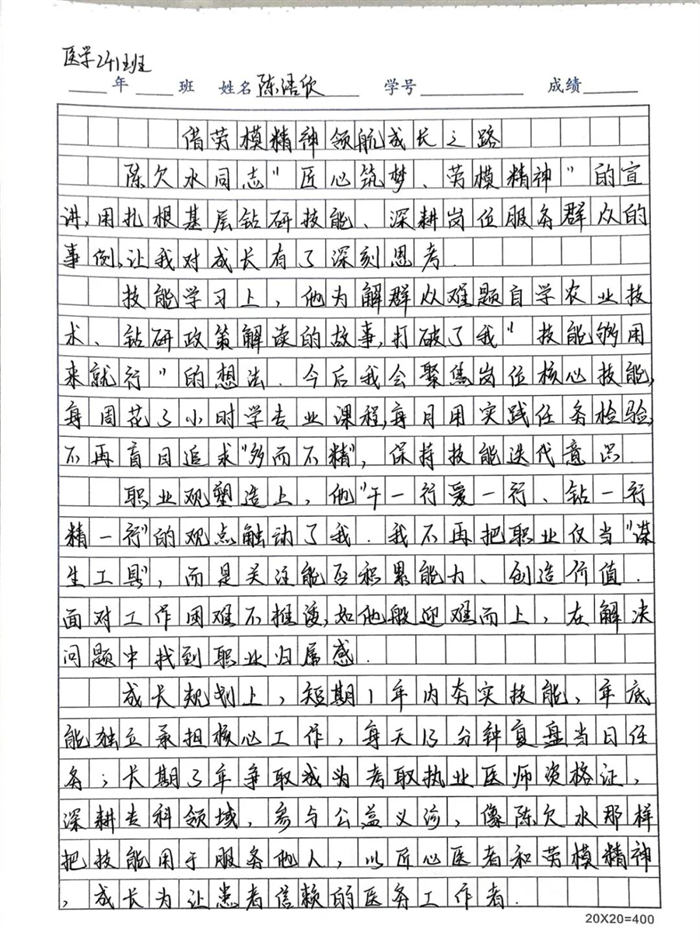 医学241班
年 班 姓名 陈浩欣 学号 成绩
借劳模精神领航成长之路
陈欠水同志"匠心筑梦、劳模精神"的宣
讲,用扎根基层钻研技能、深耕岗位服务群众的
事例,让我对成长有了深刻思考.
技能学习上,他为解群众难题自学农业技
术、钻研政策解读的故事,打破了我"技能够用
来就行"的想法.今后我会聚焦岗位核心技能,
每周花3小时学专业课程,每月用实践任务检验,
不再盲目追求"多而不精",保持技能迭代意识.
职业观塑造上,他"干一行爱一行、钻一行
精一行"的观点触动了我.我不再把职业仅当"谋
生工具",而是关注能否积累能力、创造价值.
面对工作困难不推诿,如他般迎难而上,在解决
问题中找到职业归属感.
成长规划上,短期1年内夯实技能,年底
能独立承担核心工作,每天15分钟复盘当日任
务;长期3年争取成为考取执业医师资格证,
深耕专科领域,参与公益义诊,像陈欠水那样
把技能用于服务他人,以匠心医者和劳模精神
,成长为让患者信赖的医务工作者.
20X20=400